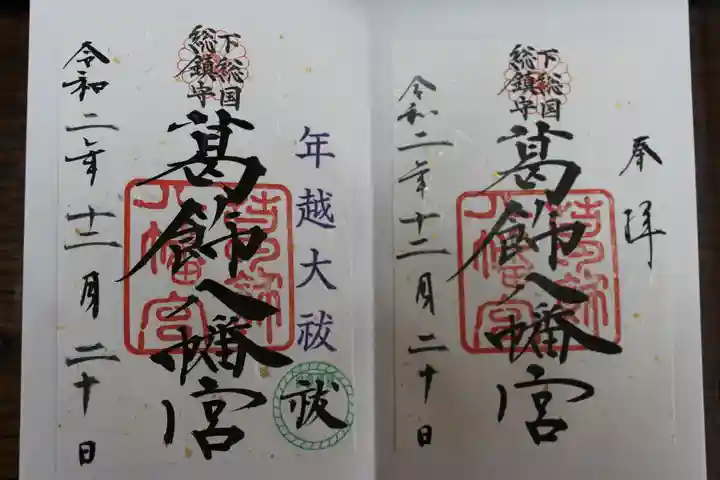 奉拝
下総国
総鎮守
葛飾八幡宮
葛飾
八幡宮
令和二年十二月二十日
年越大祓
祓
下総国
総鎮守
葛飾八幡宮
葛飾
八幡宮
令和二年十二月二十日